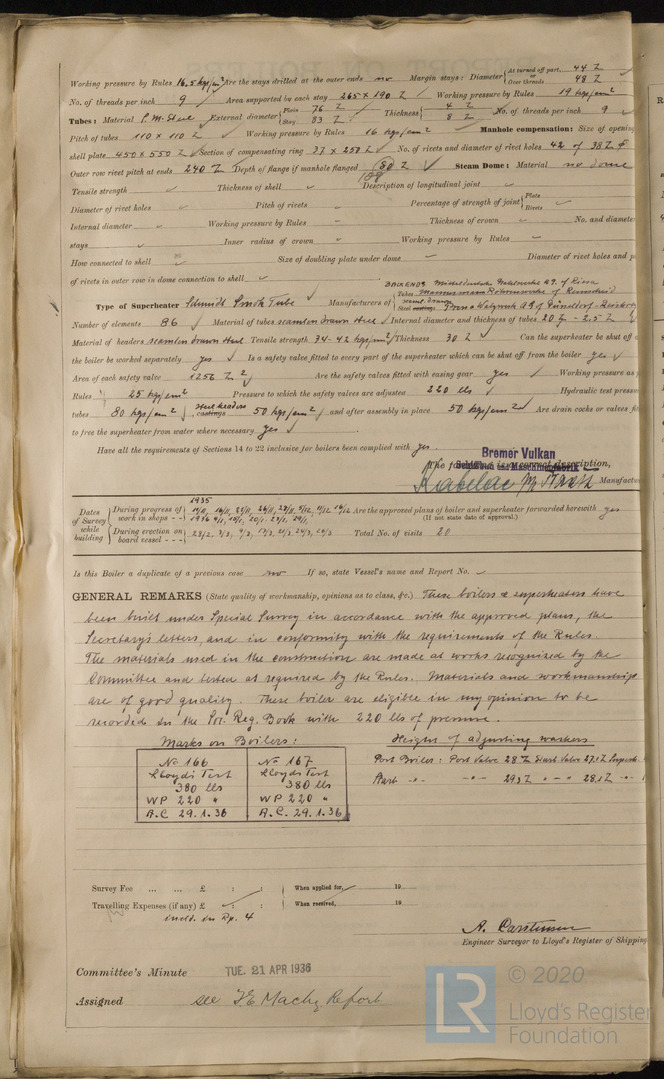 Working pressure by Rules 16,5 kgs/cm² Are the stays drilled at the outer ends no Margin stays: Diameter { At turned off part, 44 Z or Over threads 48 Z
No. of threads per inch 9 Area supported by each stay 265 x 190 Z Working pressure by Rules 19 kgs/cm²
Tubes: Material S.M. Steel External diameter { Plain 76 Z Stay 83 Z Thickness { 4 Z 8 Z No. of threads per inch 9
Pitch of tubes 110 x 110 Z Working pressure by Rules 16 kgs/cm² Manhole compensation: Size of opening
shell plate 450 x 550 Z Section of compensating ring No. of rivets and diameter of rivet holes 42 of 38 Z
Outer row rivet pitch at ends 240 Z Depth of flange if manhole flanged Steam Dome: Material no dome
Tensile strength Thickness of shell Description of longitudinal joint
Diameter of rivet holes Pitch of rivets Percentage of strength of joint { Plate Rivets
Internal diameter Working pressure by Rules Thickness of crown No. and diameter
stays Inner radius of crown Working pressure by Rules
How connected to shell Size of doubling plate under dome Diameter of rivet holes and p
of rivets in outer row in dome connection to shell
Type of Superheater Schmidt Smoke Tube Manufacturers of
Number of elements 86 Material of tubes seamless drawn steel Internal diameter and thickness of tubes 20 Z - 2,5 Z
Material of headers seamless drawn steel Tensile strength 34-42 kgs/mm² Thickness 30 Z Can the superheater be shut off
the boiler be worked separately yes Is a safety valve fitted to every part of the superheater which can be shut off from the boiler yes
Area of each safety valve 1256 Z² Are the safety valves fitted with easing gear yes Working pressure as
Rules 25 kgs/cm² Pressure to which the safety valves are adjusted 220 lbs Hydraulic test pressure
tubes 80 kgs/cm² steel headers castings 50 kgs/cm² and after assembly in place 50 kgs/cm² Are drain cocks or valves fit
to free the superheater from water where necessary yes
Have all the requirements of Sections 14 to 22 inclusive for boilers been complied with yes.
Bremer Vulkan
The foregoing is a correct description,
Manufacture
Dates of Survey while building { During progress of work in shops - - 1935 1936 Are the approved plans of boiler and superheater forwarded herewith yes
(If not state date of approval.)
During erection on board vessel - - - Total No. of visits 20
Is this Boiler a duplicate of a previous case no If so, state Vessel's name and Report No.
GENERAL REMARKS (State quality of workmanship, opinions as to class, &c.) These boilers & superheaters have
been built under Special Survey in accordance with the approved plans, the
Secretary's letters, and in conformity with the requirements of the Rules
The materials used in the construction are made at works recognized by the
Committee and tested as required by the Rules. Materials and workmanship
are of good quality. These boiler are eligible in my opinion to be
recorded in the Soc. Reg. Book with 220 lbs of pressure.
Marks on Boilers: Heights of adjusting washers
No 166 No 167
Lloyds Test Lloyds Test
380 lbs 380 lbs
WP 220 " WP 220 "
A.C. 29.1.36 A.C. 29.1.36
Port Boiler: Port Valve 28 Z Start Valve 27,1 Z
Start -"- -"- 29,3 Z -"- 28,1 Z -"-
Survey Fee ... ... £ : : When applied for, 19
Travelling Expenses (if any) £ : : When received, 19
incld. in Rp. 4
A. Carstensen
Engineer Surveyor to Lloyd's Register of Shipping
Committee's Minute TUE. 21 APR 1936
Assigned see F.E. Machy Report
© 2020
LR
Lloyd's Register
Foundation